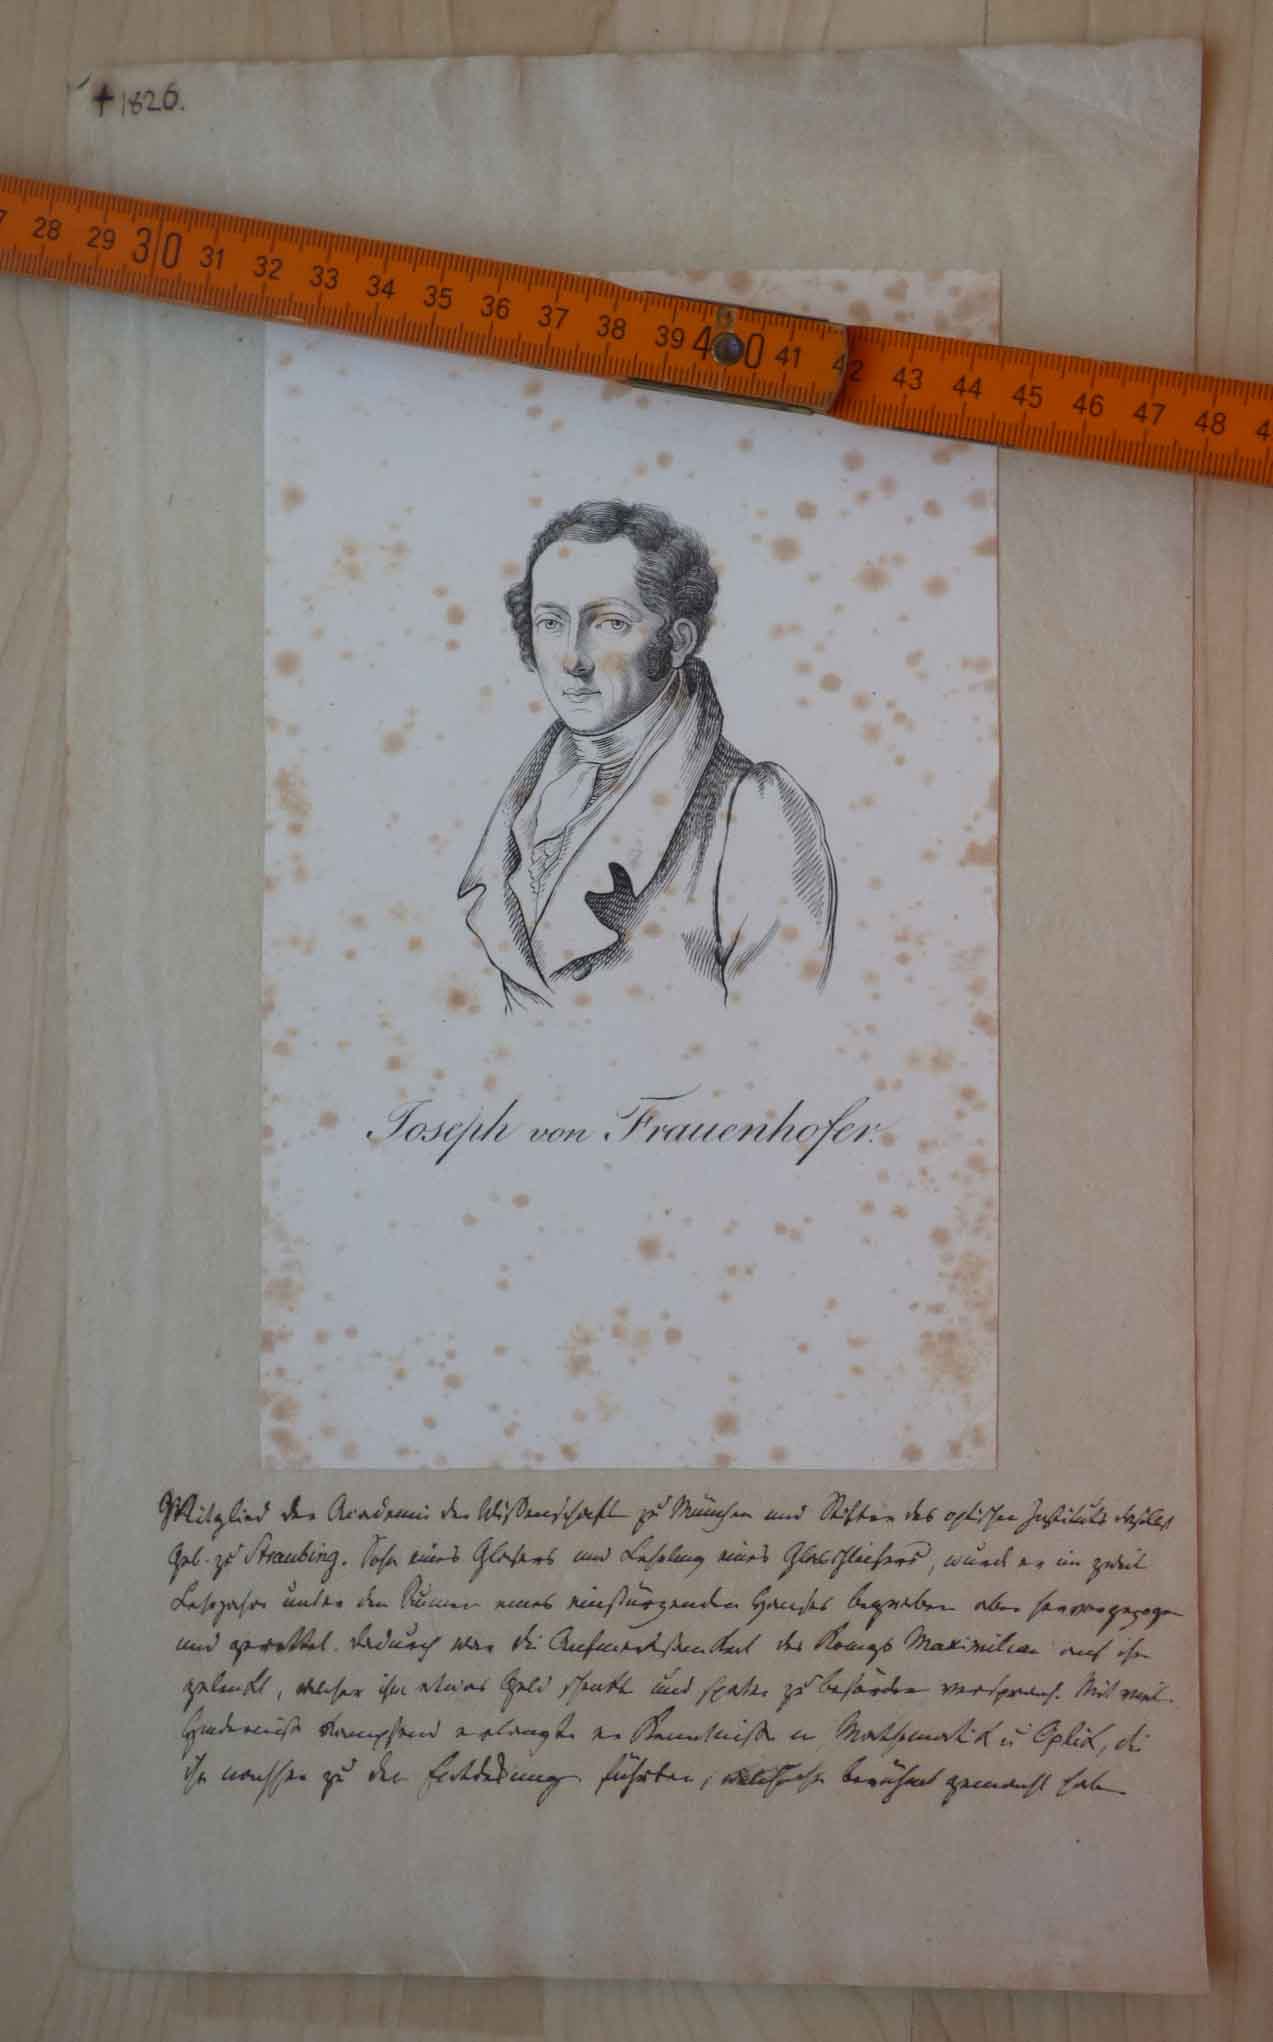 ✝ 1826.
28 29 30 31 32 33 34 35 36 37 38 39 40 41 42 43 44 45 46 47 48
Joseph von Frauenhofer.
Mitglied der Academie der Wissenschaft zu München und Stifter des optischen Instituts daselbst
Geb. zu Straubing. Sohn eines Glasers und Lehrling eines Glasschleifers, wurde er im zweit
Lehrjahre unter den Ruinen eines einstürzenden Hauses begraben aber hervorgezogen
und gerettet. Dadurch war die Aufmerksamkeit des Königs Maximilian auf ihn
gelenkt, welcher ihm etwas Geld schenkte und später zu befördern versprach. Mit viel
Hinderniß kämpfend erlangte er Kenntniße in Mathematik u Optik, die
ihn nachher zu den Entdeckung führten, berühmt gemacht hab